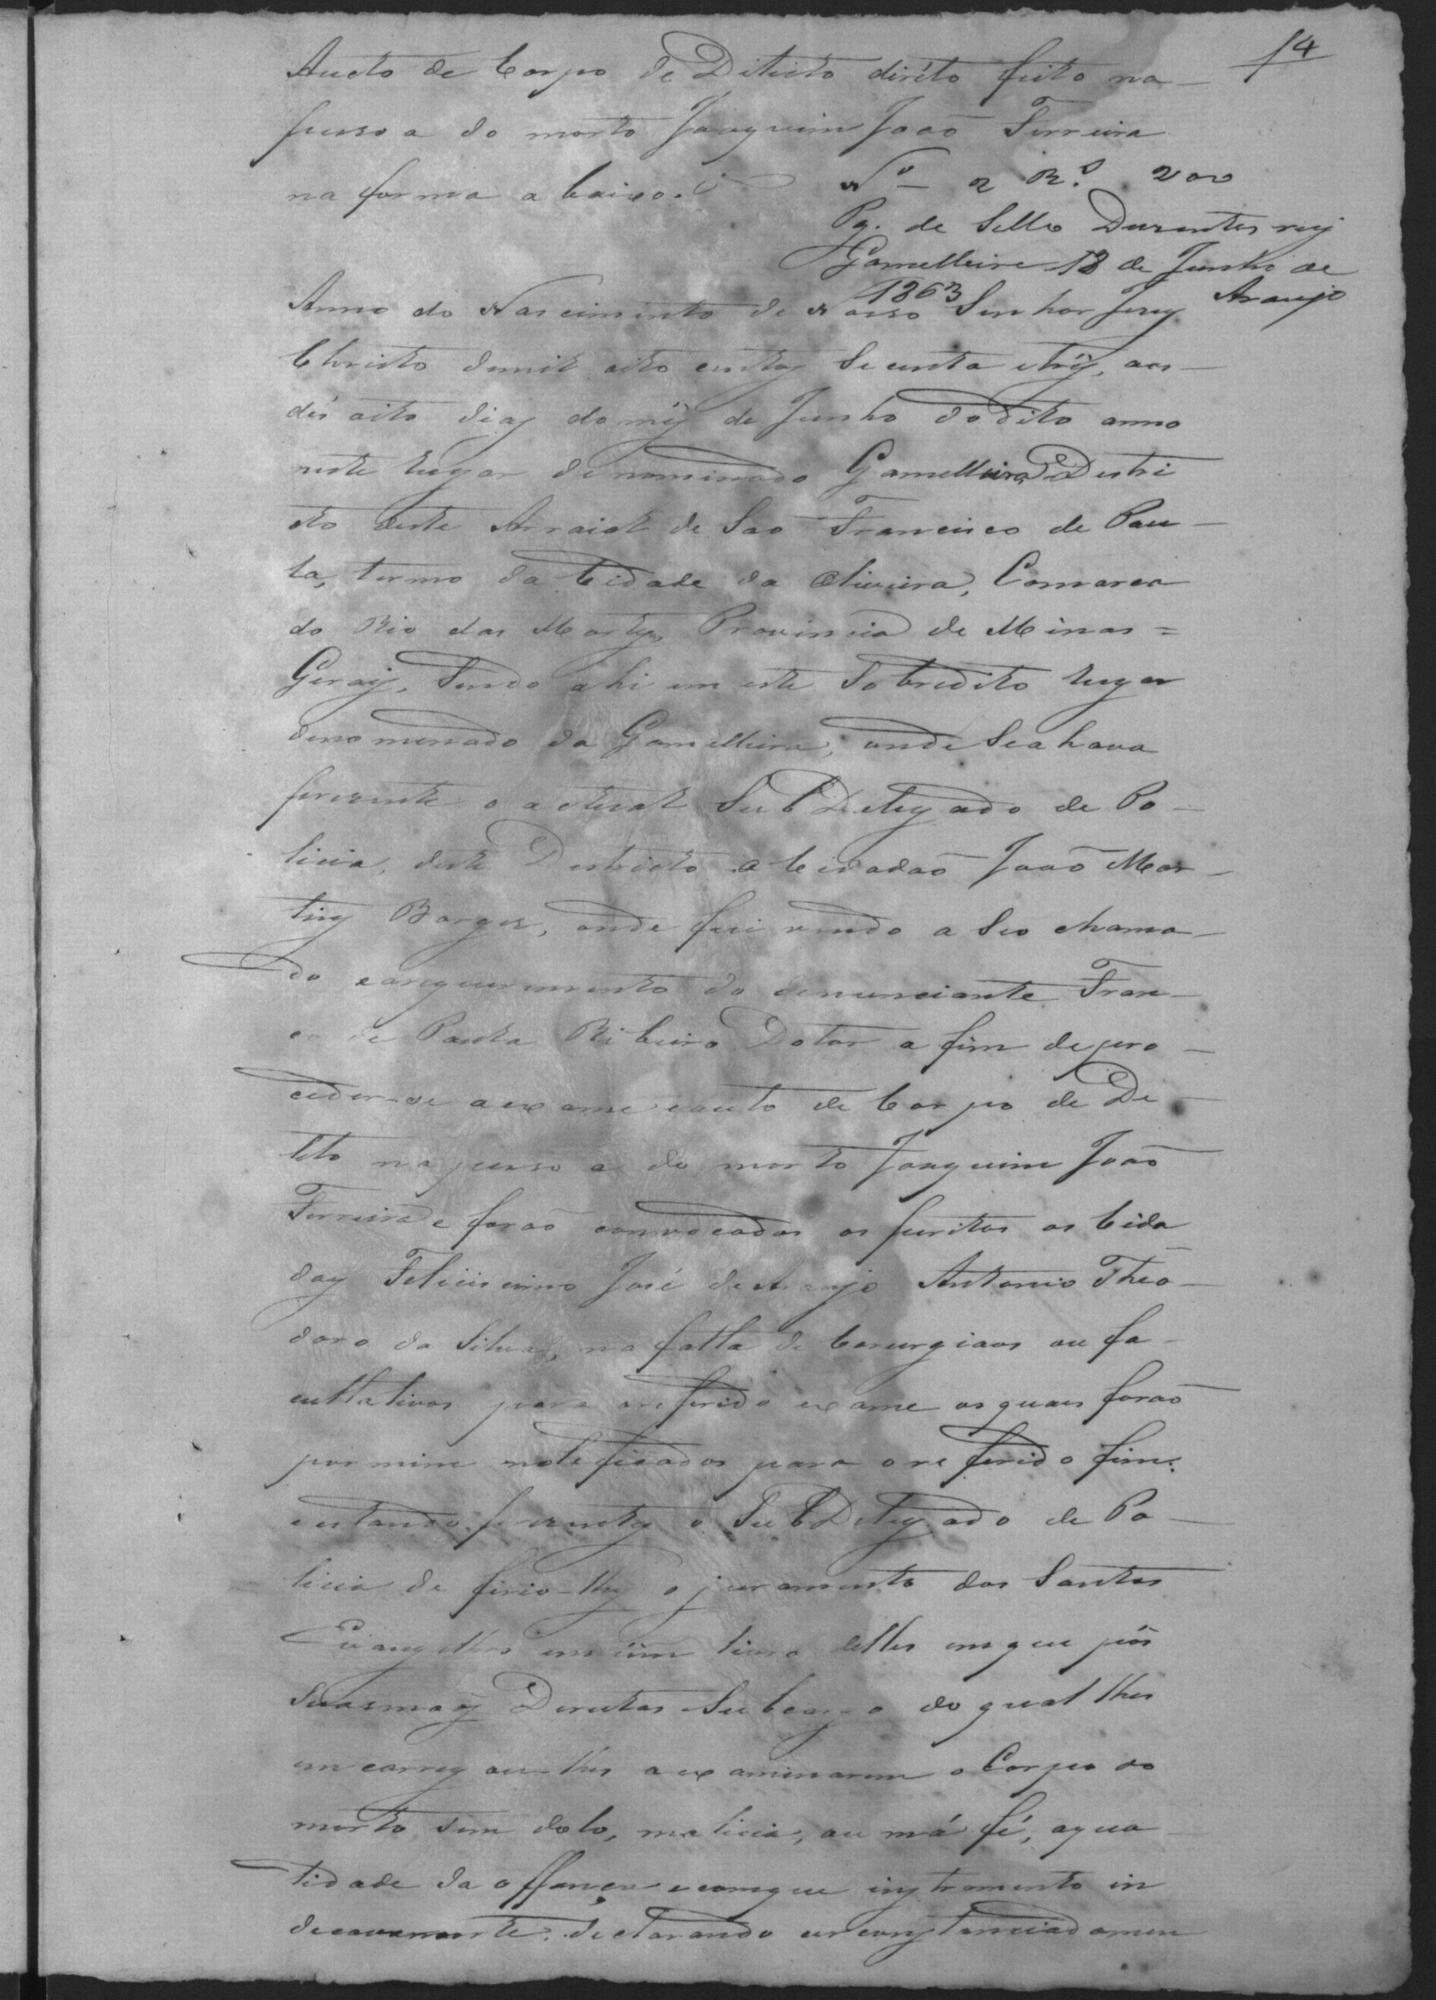 14
Aucto de Corpo de Dilicto diréto feito na
pessoa do morto Joaquim João Ferreira
na forma abaixo.
Nº 2 Rº 200
Pg. de Sello Duzentos reis
Gamelleira 18 de Junho de
1863 Araujo
Anno do Nascimento de Nosso Senhor Jesus
Christo de mil oito centos secenta e tres, aos
dés oito dias do mes de Junho do dito anno
neste lugar denominado Gamelleira Destri
cto deste Arraial de São Francisco de Pau
la, termo da Cidade da Oliveira, Comarca
do Rio das Mortes, Provincia de Minas =
Gerais, Sendo ahi em este Sobredito lugar
denominado da Gamelleira, onde Seahava
prezente o actual SubDelegado de Po
licia, deste Destricto o Cidadão João Mar
tins Borges, onde fui vindo a Seo chama
do e arequerimento do denunciante Fran
co de Paula Ribeiro Dotor a fim de pro
ceder-se a exame e auto de Corpo de De
lito na pessoa do morto Joaquim João
Ferreira e forão convocados os peritos os Cida
dões Felicissimo José de Araujo Antonio Theo
doro da Silva, na falta de Cerurgiaos ou fa
cultativos para oreferido exame os quais forão
por mim noteficados para o referido fim:
e estando prezentes o SubDelegado de Po
licia deferio-lhes o juramento dos Santos
Evangelhos em um livro delles em que pôs
Suasmãos Dereitas Subcargo do qual lhes
encarregou-lhes a examinarem o Corpo do
morto sem dolo, malicia, ou má fé, aqua
lidade da offença e comque instromento in
declarando circonstanciadamen